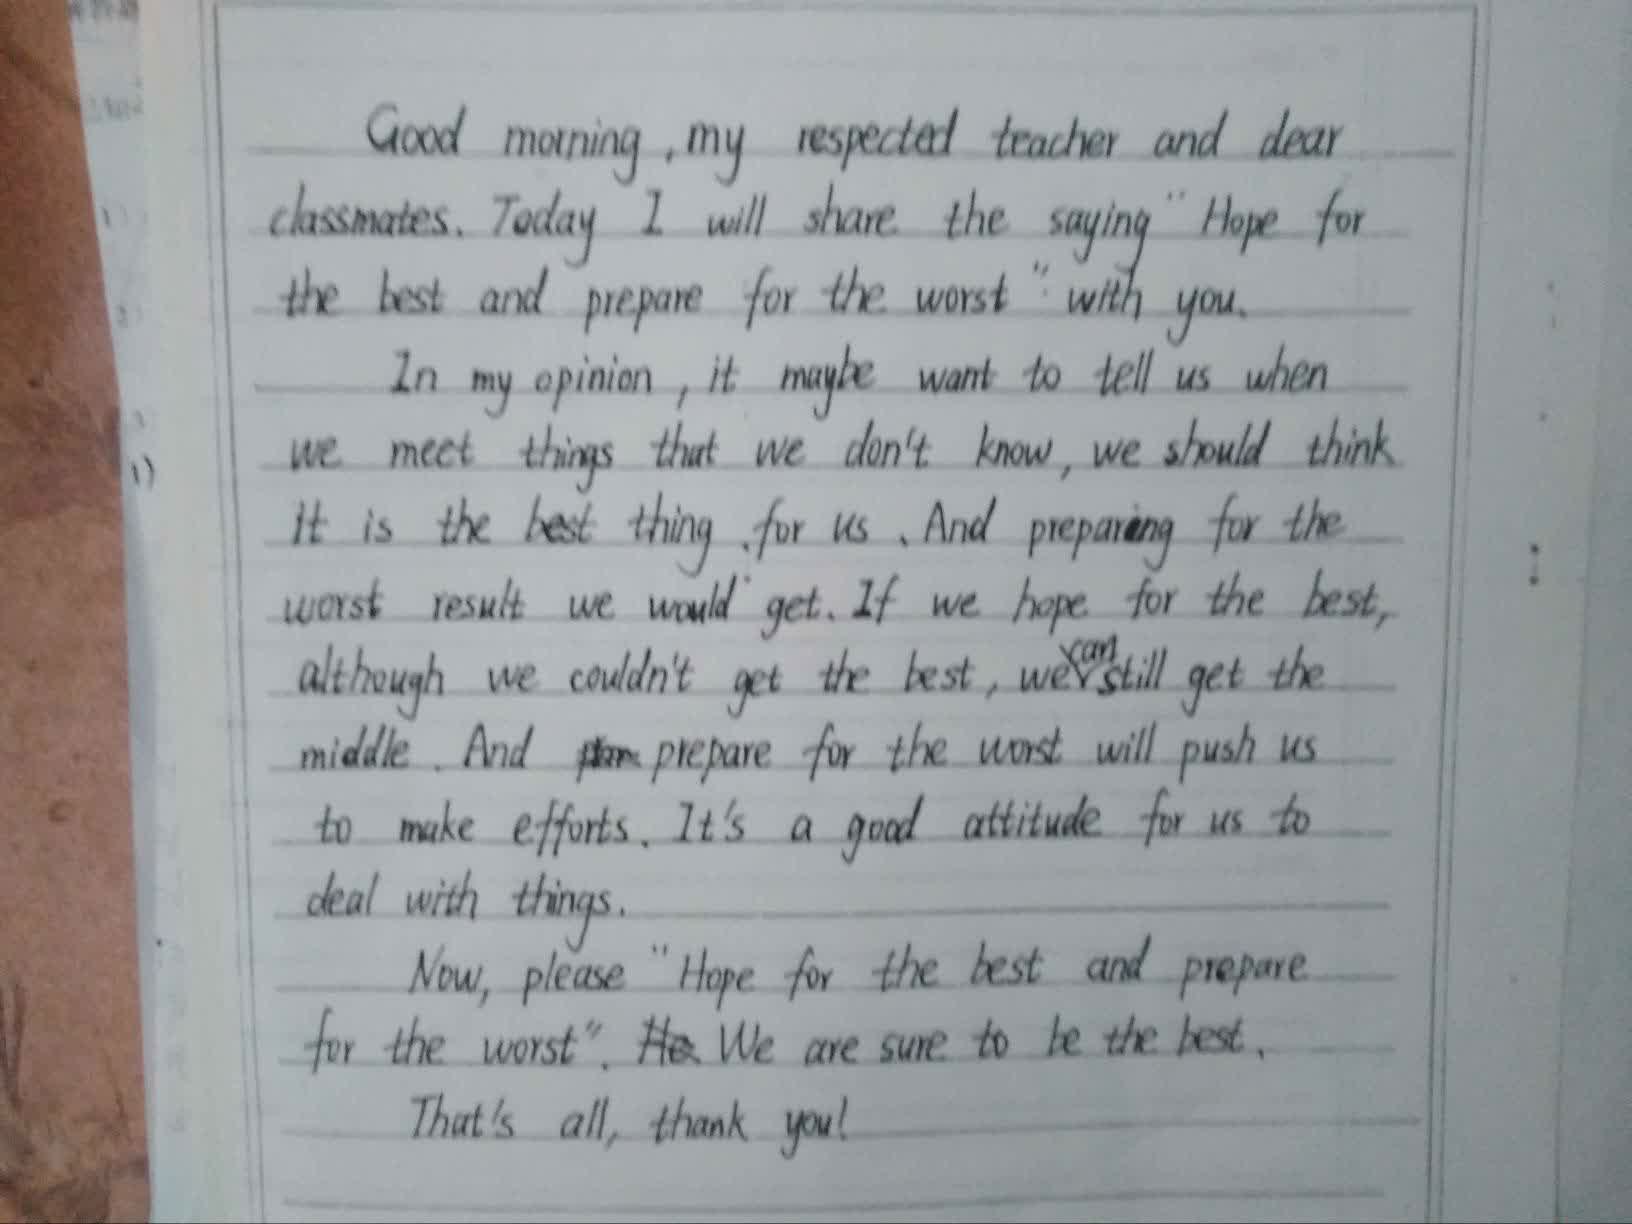 Good morning, my respected teacher and dear
classmates. Today I will share the saying "Hope for
the best and prepare for the worst" with you.
In my opinion, it maybe want to tell us when
we meet things that we don't know, we should think
1)
it is the best thing for us. And preparing for the
worst result we would get. If we hope for the best,
although we couldn't get the best, we can still get the
middle. And prepare for the worst will push us
to make efforts. It's a good attitude for us to
deal with things.
Now, please "Hope for the best and prepare
for the worst". We are sure to be the best.
That's all, thank you!